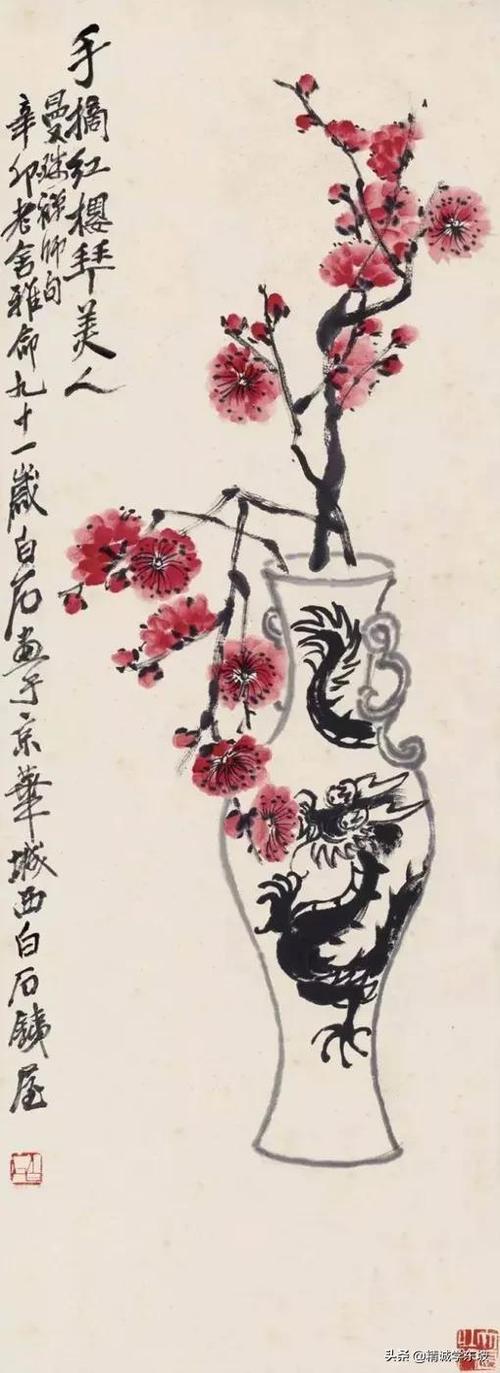 手摘红樱拜美人
曼珠禅师句
辛卯老舍雅命九十一岁白石画于京华城西白石铁屋
头条@精诚学东坡